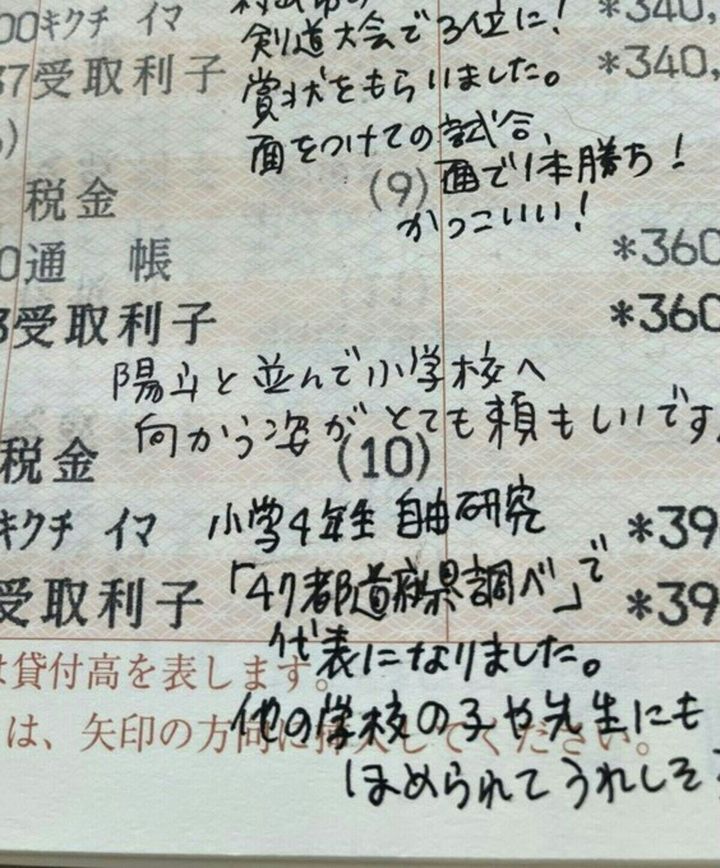 00キクチ イマ
*340,
剣道大会で3位に!
37受取利子
*340,
賞状をもらいました。
)
面をつけての試合、
税金
(9)
面で1本勝ち!
かっこいい!
0通 帳
*360
3受取利子
*360
陽斗と並んで小学校へ
向かう姿がとても頼もしいです。
税金
(10)
キクチ イマ
小学4年生 自由研究
*39
受取利子
「47都道府県調べ」で
*39
代表になりました。
は貸付高を表します。
他の学校の子や先生にも
は、矢印の方向に挿入してください。
ほめられてうれしそ